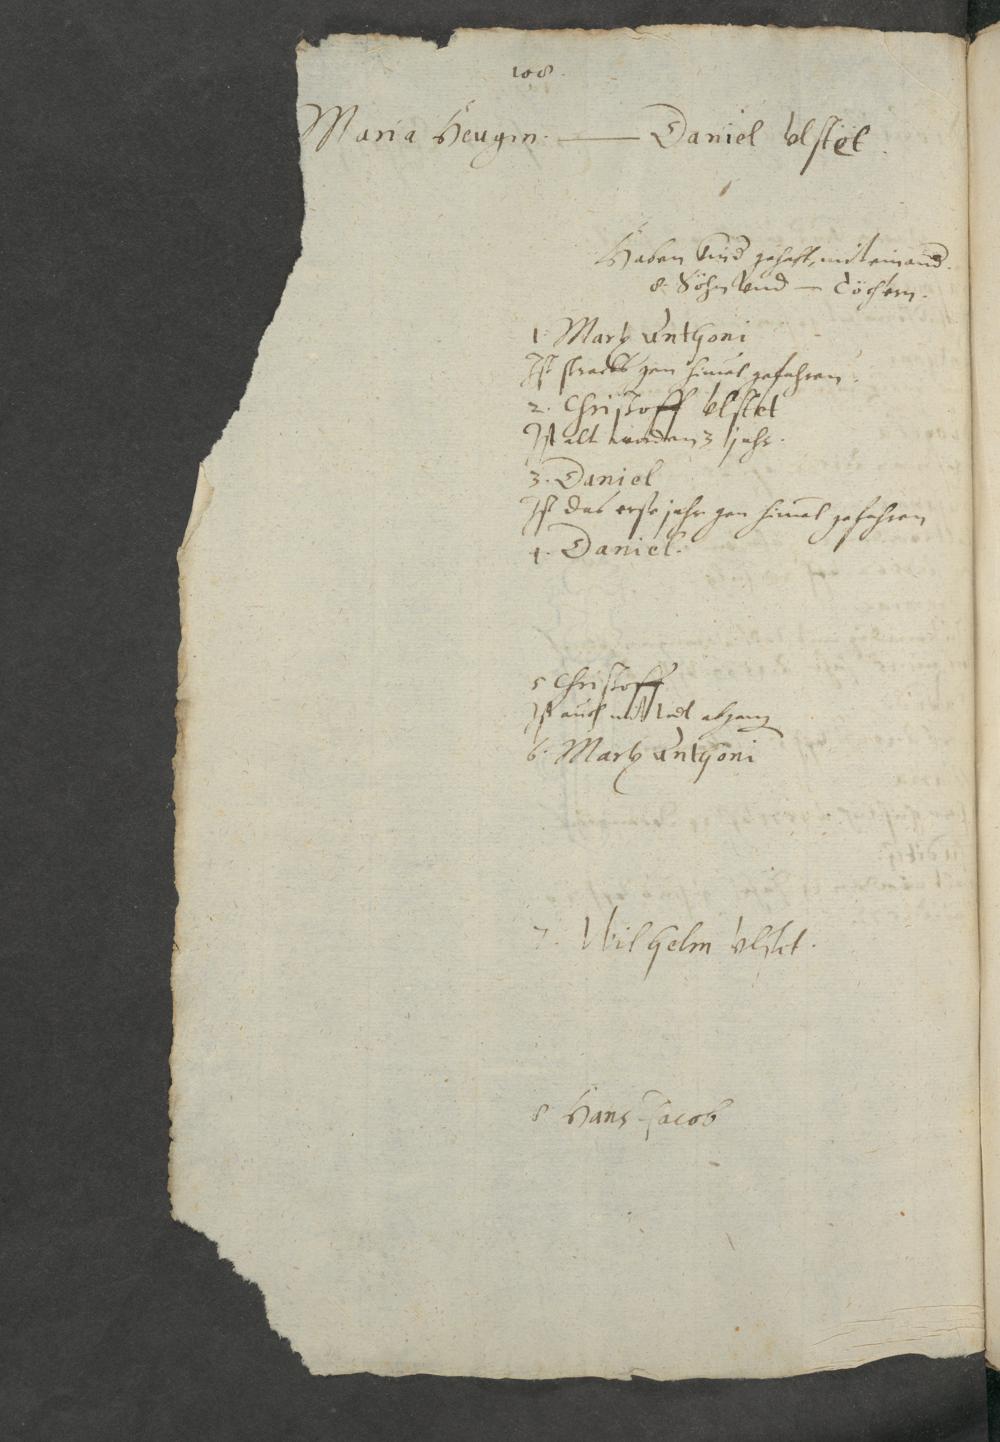 108.
Maria Heugin. — Daniel Ulstet.
Haben Kind gehabt, mit einand.
8. Söhn und — Töchtern.
1. Marx Anthoni
Ist stracks gen himel gefahren.
2. Christoff Ulstet
Ist alt worden 3 jahr.
3. Daniel
Ist das erste jahr gen himel gefahren
4. Daniel.
5 Christoff
Ist auch mit todt abgang
6. Marx Anthoni
7. Wilhelm Ulstet.
8 Hans Jacob